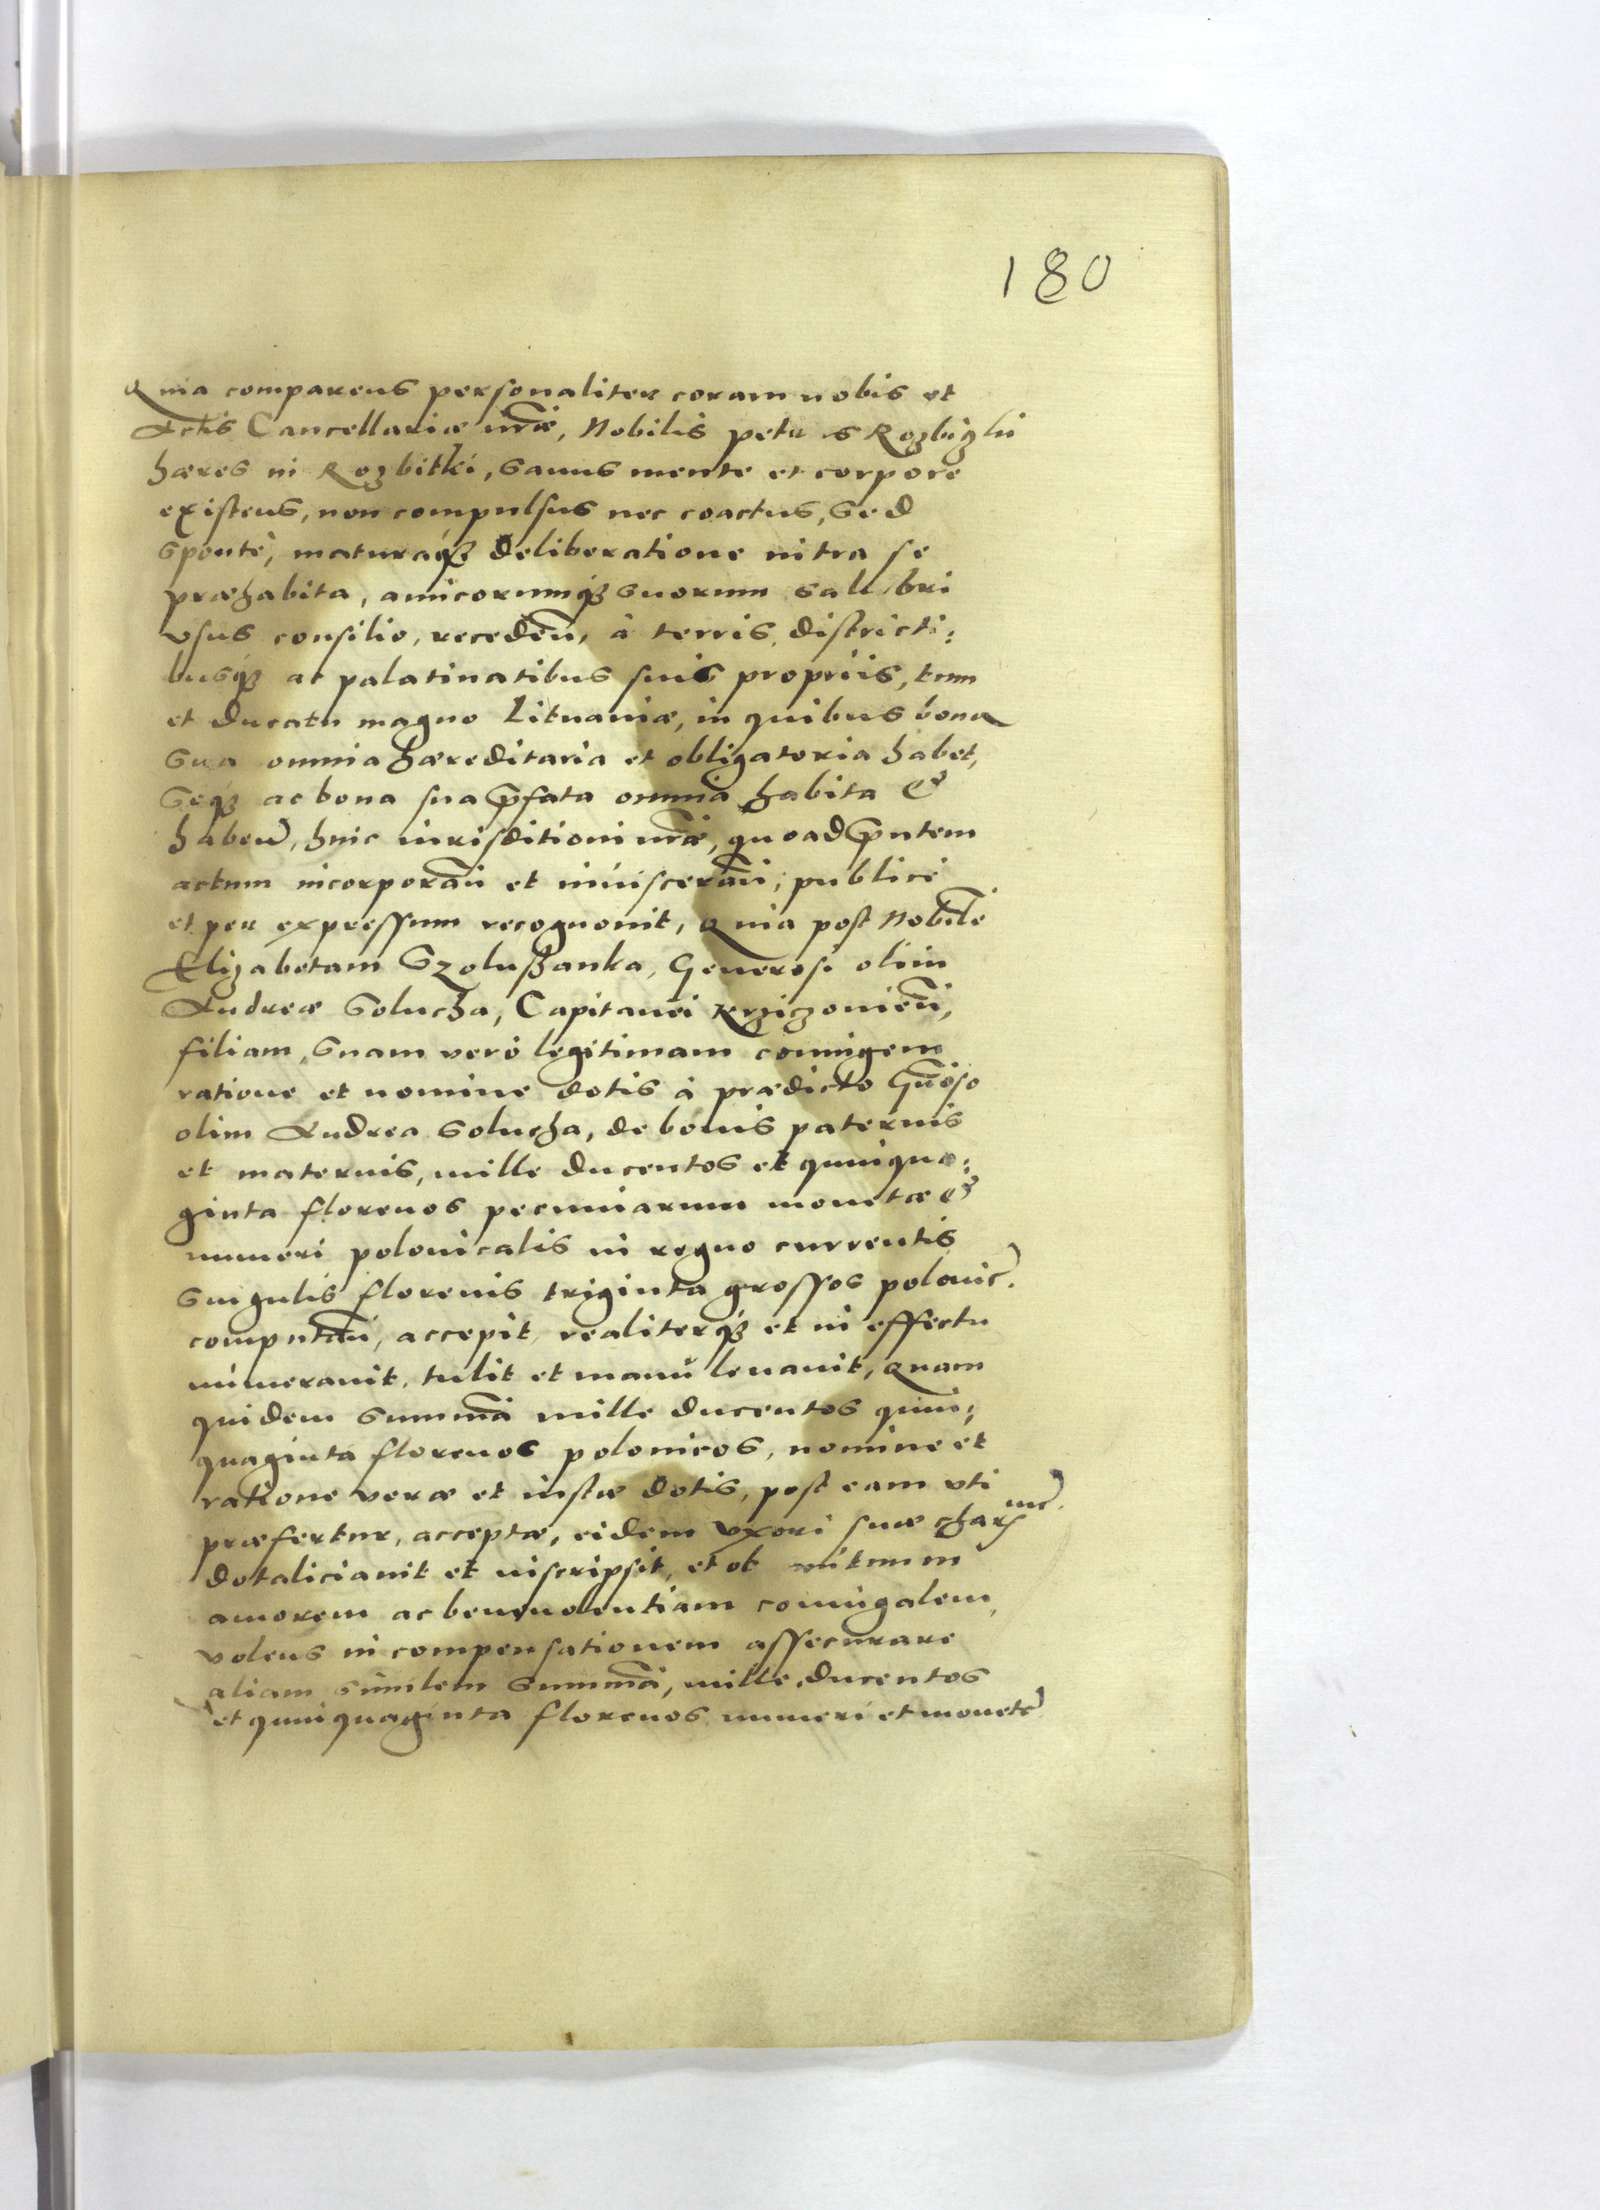 180
Quia comparens personaliter coram nobis et
Actis Cancellariæ nr̃æ, Nobilis Petrus Rozbiczki
hæres in Rozbitki, sanus mente et corpore
existens, non compulsus nec coactus, sed
sponte, maturaq₃ deliberatione intra se
præhabita, amicorumq₃ suorum salubri
vsus consilio, receden̄, à terris, districti:
busq₃ ac palatinatibus suis proprijs, tum
et Ducatu magno Lituaniæ, in quibus bona
sua omnia hæreditaria et obligatoria habet,
seq₃ ac bona sua p̃fata omnia habita &
haben̄, huic iurisditioni nr̃æ, quoad p̃ntem
actum incorporan̄ et inuisceran̄, publicè
et per expressum recognouit, Quia post Nobile̅
Elizabetam Szolußanka, Generosi olim
Andreæ Solucha, Capitanei Krziczouien̄,
filiam, suam verò legitimam coniugem
ratione et nomine dotis à prædicto Gn̄oso
olim Andrea Solucha, de bonis paternis
et maternis, mille ducentos et quinqua:
ginta florenos pecuniarum monetæ &
numeri polonicalis in regno currentis
singulis florenis triginta grossos polonic̃.
computan̄, accepit, realiterq₃ et in effectu
numerauit, tulit et manu leuauit, Quam
quidem summā mille ducentos quin:
quaginta florenos polonicos, nomine et
ratione veræ et iustæ dotis, post eam vti
præfertur, acceptæ, eidem vxori suæ charˢᵐᵉ̃.
dotaliciauit et inscripsit, et ob mutuum
amorem ac beneuolentiam coniugalem,
volens in compensationem assecurare
aliam similem summā, mille ducentos
et quinquaginta florenos numeri et monete